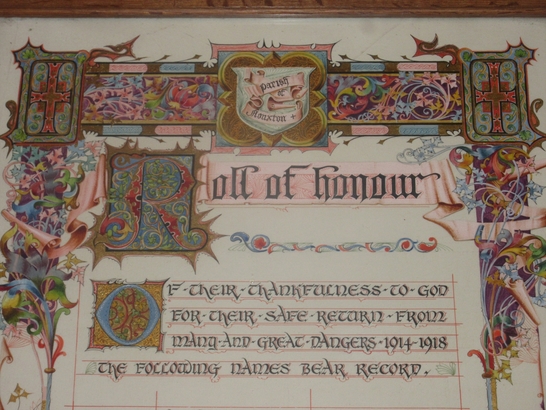 Parish
of
Manston
Roll of honour
OF·THEIR·THANKFULNESS·TO·GOD
FOR·THEIR·SAFE·RETURN·FROM
MANY·AND·GREAT·DANGERS·1914-1918
THE FOLLOWING NAMES BEAR RECORD.